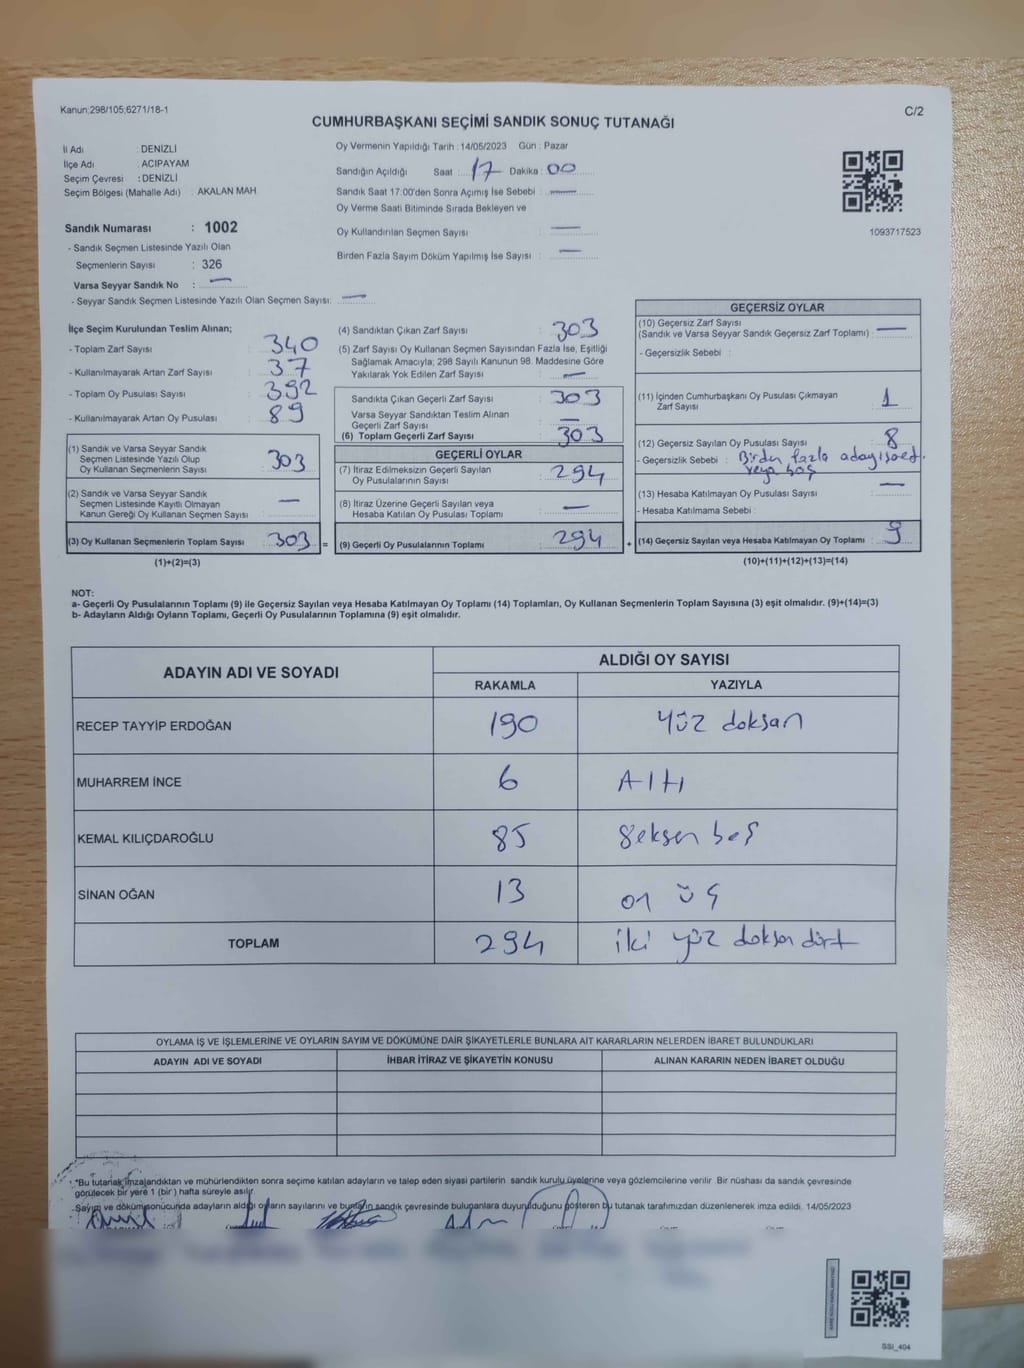 Kanun:298/105;6271/18-1
C/2
CUMHURBAŞKANI SEÇİMİ SANDIK SONUÇ TUTANAĞI
İl Adı : DENİZLİ
İlçe Adı : ACIPAYAM
Seçim Çevresi : DENİZLİ
Seçim Bölgesi (Mahalle Adı) : AKALAN MAH.
Sandık Numarası : 1002
- Sandık Seçmen Listesinde Yazılı Olan
Seçmenlerin Sayısı : 326
Varsa Seyyar Sandık No : —
- Seyyar Sandık Seçmen Listesinde Yazılı Olan Seçmen Sayısı: —
Oy Vermenin Yapıldığı Tarih : 14/05/2023 Gün : Pazar
Sandığın Açıldığı Saat : 17 Dakika : 00
Sandık Saat 17:00'den Sonra Açımış İse Sebebi : —
Oy Verme Saati Bitiminde Sırada Bekleyen ve
Oy Kullandırılan Seçmen Sayısı —
Birden Fazla Sayım Döküm Yapılmış İse Sayısı : —
1093717523
İlçe Seçim Kurulundan Teslim Alınan;
- Toplam Zarf Sayısı : 340
- Kullanılmayarak Artan Zarf Sayısı : 37
- Toplam Oy Pusulası Sayısı : 392
- Kullanılmayarak Artan Oy Pusulası : 89
(1) Sandık ve Varsa Seyyar Sandık
Seçmen Listesinde Yazılı Olup
Oy Kullanan Seçmenlerin Sayısı 303
(2) Sandık ve Varsa Seyyar Sandık
Seçmen Listesinde Kayıtlı Olmayan
Kanun Gereği Oy Kullanan Seçmen Sayısı —
(3) Oy Kullanan Seçmenlerin Toplam Sayısı 303 =
(1)+(2)=(3)
(4) Sandıktan Çıkan Zarf Sayısı : 303
(5) Zarf Sayısı Oy Kullanan Seçmen Sayısından Fazla İse, Eşitliği
Sağlamak Amacıyla; 298 Sayılı Kanunun 98. Maddesine Göre
Yakılarak Yok Edilen Zarf Sayısı : —
Sandıkta Çıkan Geçerli Zarf Sayısı : 303
Varsa Seyyar Sandıktan Teslim Alınan
Geçerli Zarf Sayısı : —
(6) Toplam Geçerli Zarf Sayısı : 303
GEÇERLİ OYLAR
(7) İtiraz Edilmeksizin Geçerli Sayılan
Oy Pusulalarının Sayısı : 294
(8) İtiraz Üzerine Geçerli Sayılan veya
Hesaba Katılan Oy Pusulası Toplamı : —
(9) Geçerli Oy Pusulalarının Toplamı : 294 +
GEÇERSİZ OYLAR
(10) Geçersiz Zarf Sayısı
(Sandık ve Varsa Seyyar Sandık Geçersiz Zarf Toplamı) : —
- Geçersizlik Sebebi :
(11) İçinden Cumhurbaşkanı Oy Pusulası Çıkmayan
Zarf Sayısı : 1
(12) Geçersiz Sayılan Oy Pusulası Sayısı : 8
- Geçersizlik Sebebi : Birden fazla adayişaret.
veya boş
(13) Hesaba Katılmayan Oy Pusulası Sayısı : —
- Hesaba Katılmama Sebebi :
(14) Geçersiz Sayılan veya Hesaba Katılmayan Oy Toplamı : 9
(10)+(11)+(12)+(13)=(14)
NOT:
a- Geçerli Oy Pusulalarının Toplamı (9) ile Geçersiz Sayılan veya Hesaba Katılmayan Oy Toplamı (14) Toplamları, Oy Kullanan Seçmenlerin Toplam Sayısına (3) eşit olmalıdır. (9)+(14)=(3)
b- Adayların Aldığı Oyların Toplamı, Geçerli Oy Pusulalarının Toplamına (9) eşit olmalıdır.
ADAYIN ADI VE SOYADI
ALDIĞI OY SAYISI
RAKAMLA YAZIYLA
RECEP TAYYİP ERDOĞAN 190 Yüz doksan
MUHARREM İNCE 6 Altı
KEMAL KILIÇDAROĞLU 85 Seksen beş
SİNAN OĞAN 13 on üç
TOPLAM 294 iki yüz doksan dört
OYLAMA İŞ VE İŞLEMLERİNE VE OYLARIN SAYIM VE DÖKÜMÜNE DAİR ŞİKAYETLERLE BUNLARA AİT KARARLARIN NELERDEN İBARET BULUNDUKLARI
ADAYIN ADI VE SOYADI İHBAR İTİRAZ VE ŞİKAYETİN KONUSU ALINAN KARARIN NEDEN İBARET OLDUĞU
"Bu tutanak imzalandıktan ve mühürlendikten sonra seçime katılan adayların ve talep eden siyasi partilerin sandık kurulu üyelerine veya gözlemcilerine verilir. Bir nüshası da sandık çevresinde
görülecek bir yere 1 (bir) hafta süreyle asılır.
Sayım ve döküm sonucunda adayların aldığı oyların sayılarını ve bunların sandık çevresinde bulunanlara duyurulduğunu gösteren bu tutanak tarafımızdan düzenlenerek imza edildi. 14/05/2023
SSI_404